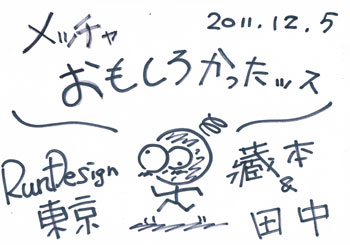 2011.12.5
メッチャ
おもしろかったッス
RunDesign
東京
藏本
&
田中